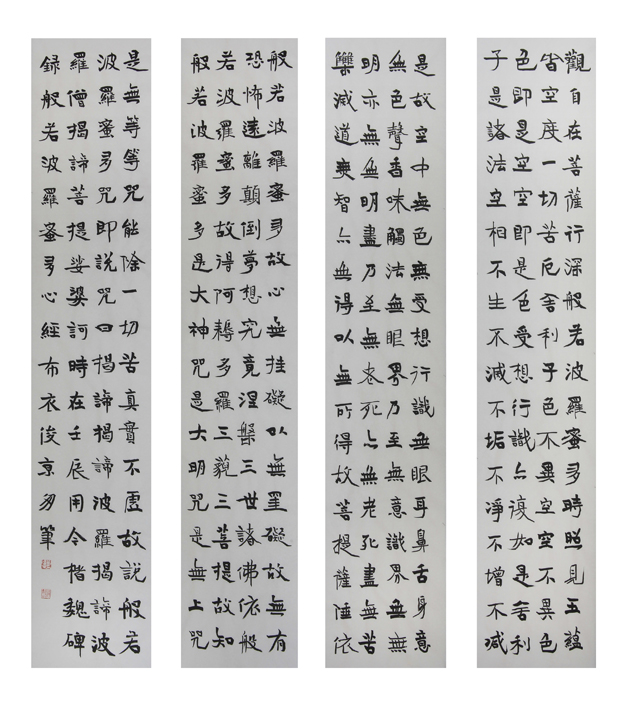 觀自在菩薩行深般若波羅蜜多時照見五蘊
皆空度一切苦厄舍利子色不異空空不異色
色即是空空即是色受想行識亦復如是舍利
子是諸法空相不生不滅不垢不淨不增不減
是故空中無色無受想行識無眼耳鼻舌身意
無色聲香味觸法無眼界乃至無意識界無無
明亦無無明盡乃至無老死亦無老死盡無苦
集滅道無智亦無得以無所得故菩提薩埵依
般若波羅蜜多故心無挂礙以無罣礙故無有
恐怖遠離顛倒夢想究竟涅槃三世諸佛依般
若波羅蜜多故得阿耨多羅三藐三菩提故知
般若波羅蜜多是大神咒是大明咒是無上咒
是無等等咒能除一切苦真實不虛故說般若
波羅蜜多咒即說咒曰揭諦揭諦波羅揭諦波
羅僧揭諦菩提娑婆訶時在壬辰用今楷魏碑
録般若波羅蜜多心經布衣俊京筆